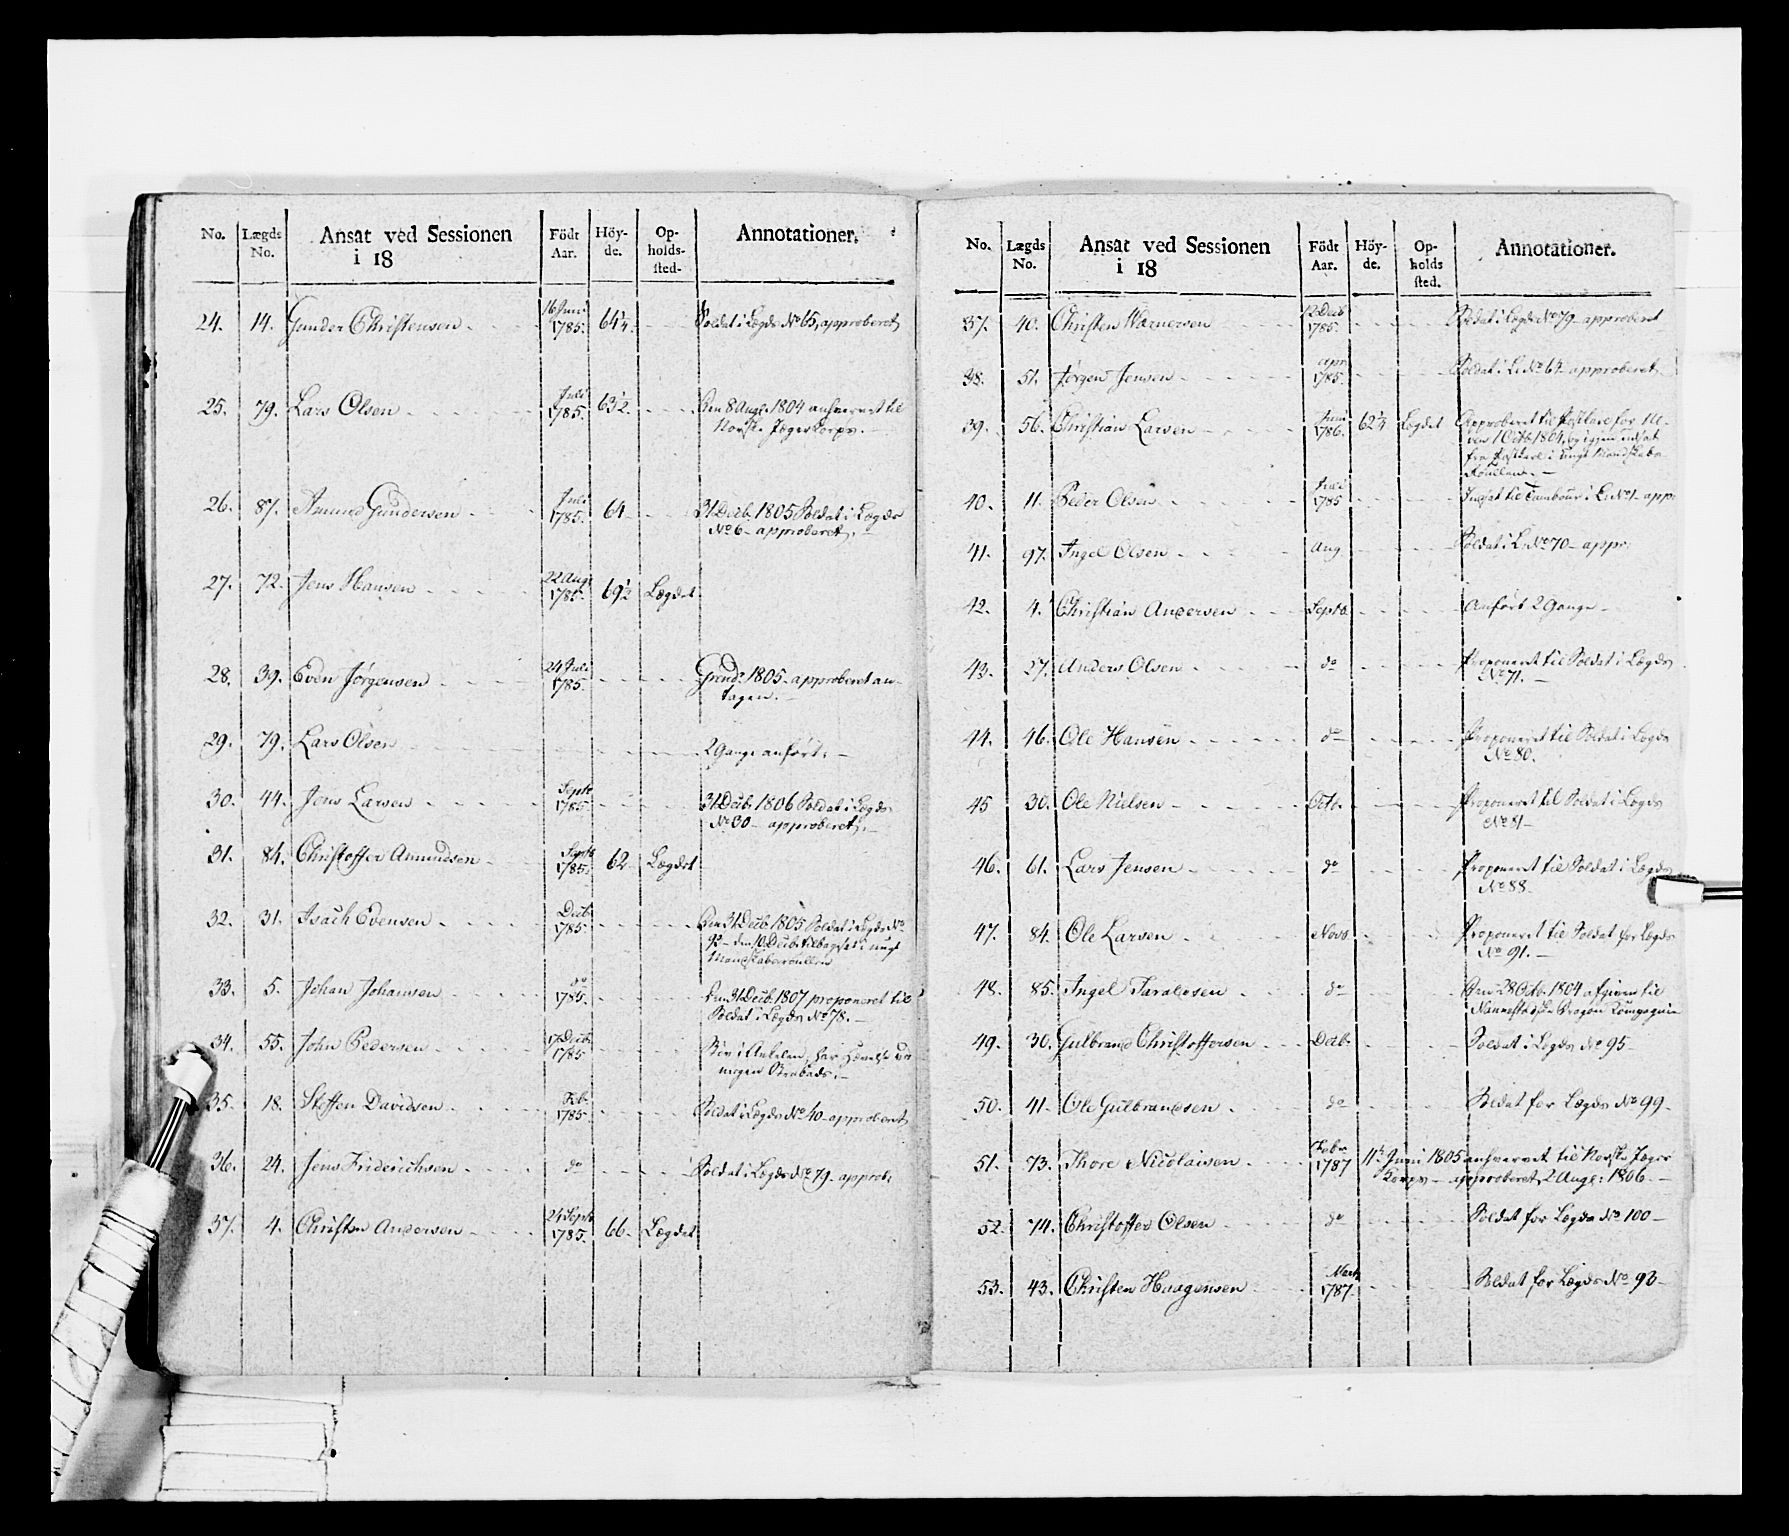 No. Lægds No. Ansat ved Sessionen i 18 Födt Aar. Höyde. Opholds-sted. Annotationer.
24. 14. Gunder Christensen 16 Juni 1785. 64¼ Soldat i Lægds No 65, approberet
25. 79. Lars Olsen Juli 1785. 63½ Den 8 Aug. 1804 anhvervet til
Norske Jæger Korps.
26. 87. Amund Gundersen Juli 1785. 64 31 Decb. 1805 Soldat i Lægds
No 6 approberet.
27. 72. Jens Hansen 22 Aug. 1785. 69½ Lægdet
28. 39. Even Jørgensen 24 Juli 1785. 1805 approberet an-
tagen.
29. 79. Lars Olsen 2 Gange anført.
30. 44. Jens Larsen Septb 1785. 31 Decb. 1806 Soldat i Lægds
No 30 approberet.
31. 84. Christoffer Amundsen Septb 1785. 62 Lægdet
32. 31. Isach Evensen Decb 1785. Den 31 Decb. 1805 Soldat i Lægds No
92 den 10 Decb tilbagesat i ungt
Mandskabsroullen
33. 5. Johan Johansen do 1785. den 31 Decb. 1807 proponeret til
Soldat i Lægds No 78.
34. 55. John Pedersen 17 Decb. 1785 i Ankelen, har
ingen Strabads.
35. 18. Steffen Davidsen Feb. 1785. Soldat i Lægds No 40 approberet
36. 24. Jens Friderichsen do Soldat i Lægds No 79 approb:
37. 4. Christen Andersen 24 Septb 1785. 66. Lægdet
No. Lægds No. Ansat ved Sessionen i 18 Födt Aar. Höyde. Opholds sted. Annotationer.
37. 40. Christen Warnersen 12 Decb 1785. Soldat i Lægds No 79 approberet
38. 51. Jørgen Jensen apr 1785. Soldat i L. No 64 approberet
39. 56. Christian Larsen Juni 1786. 62¼ Lægdet Approberet til for
den 1 Octb 1804, og igjen udsat
fra i ungt Mandskabs-
Roullen.
40. 11. Peder Olsen Juli 1785 Indsat til Tambour i L. No 1 app:
41. 97. Ingel Olsen Aug. Soldat i L. No 70 appr:
42. 4. Christian Andersen Septb. Anført 2 Gange
43. 27. Anders Olsen do Proponeret til Soldat i Lægds
No 71.
44. 46. Ole Hansen do Proponeret til Soldat i Lægds
No 80.
45 30. Ole Nielsen Octb. Proponeret til Soldat i Lægds
No 81
46. 61. Lars Jensen do Proponeret til Soldat i Lægds
No 88
47. 84. Ole Larsen Novb Proponeret til Soldat for Lægds
No 91.
48. 85. Ingel Taraldsen do Den 28 Octb. 1804 afgiven til
Dragon Kompagnie
49. 30. Gulbrand Christoffersen Decb. Soldat i Lægds No 95
50. 41. Ole Gulbrandsen do Soldat for Lægds No 99
51. 73. Thore Nicolaisen Febr 1787 11te Juni 1805 anhvervet til Norske Jæger
Korps approberet 2 Aug: 1806.
52. 74. Christoffer Olsen do Soldat for Lægds No 100
53. 43. Christen Haagensen Marts 1787. Soldat for Lægds No 93